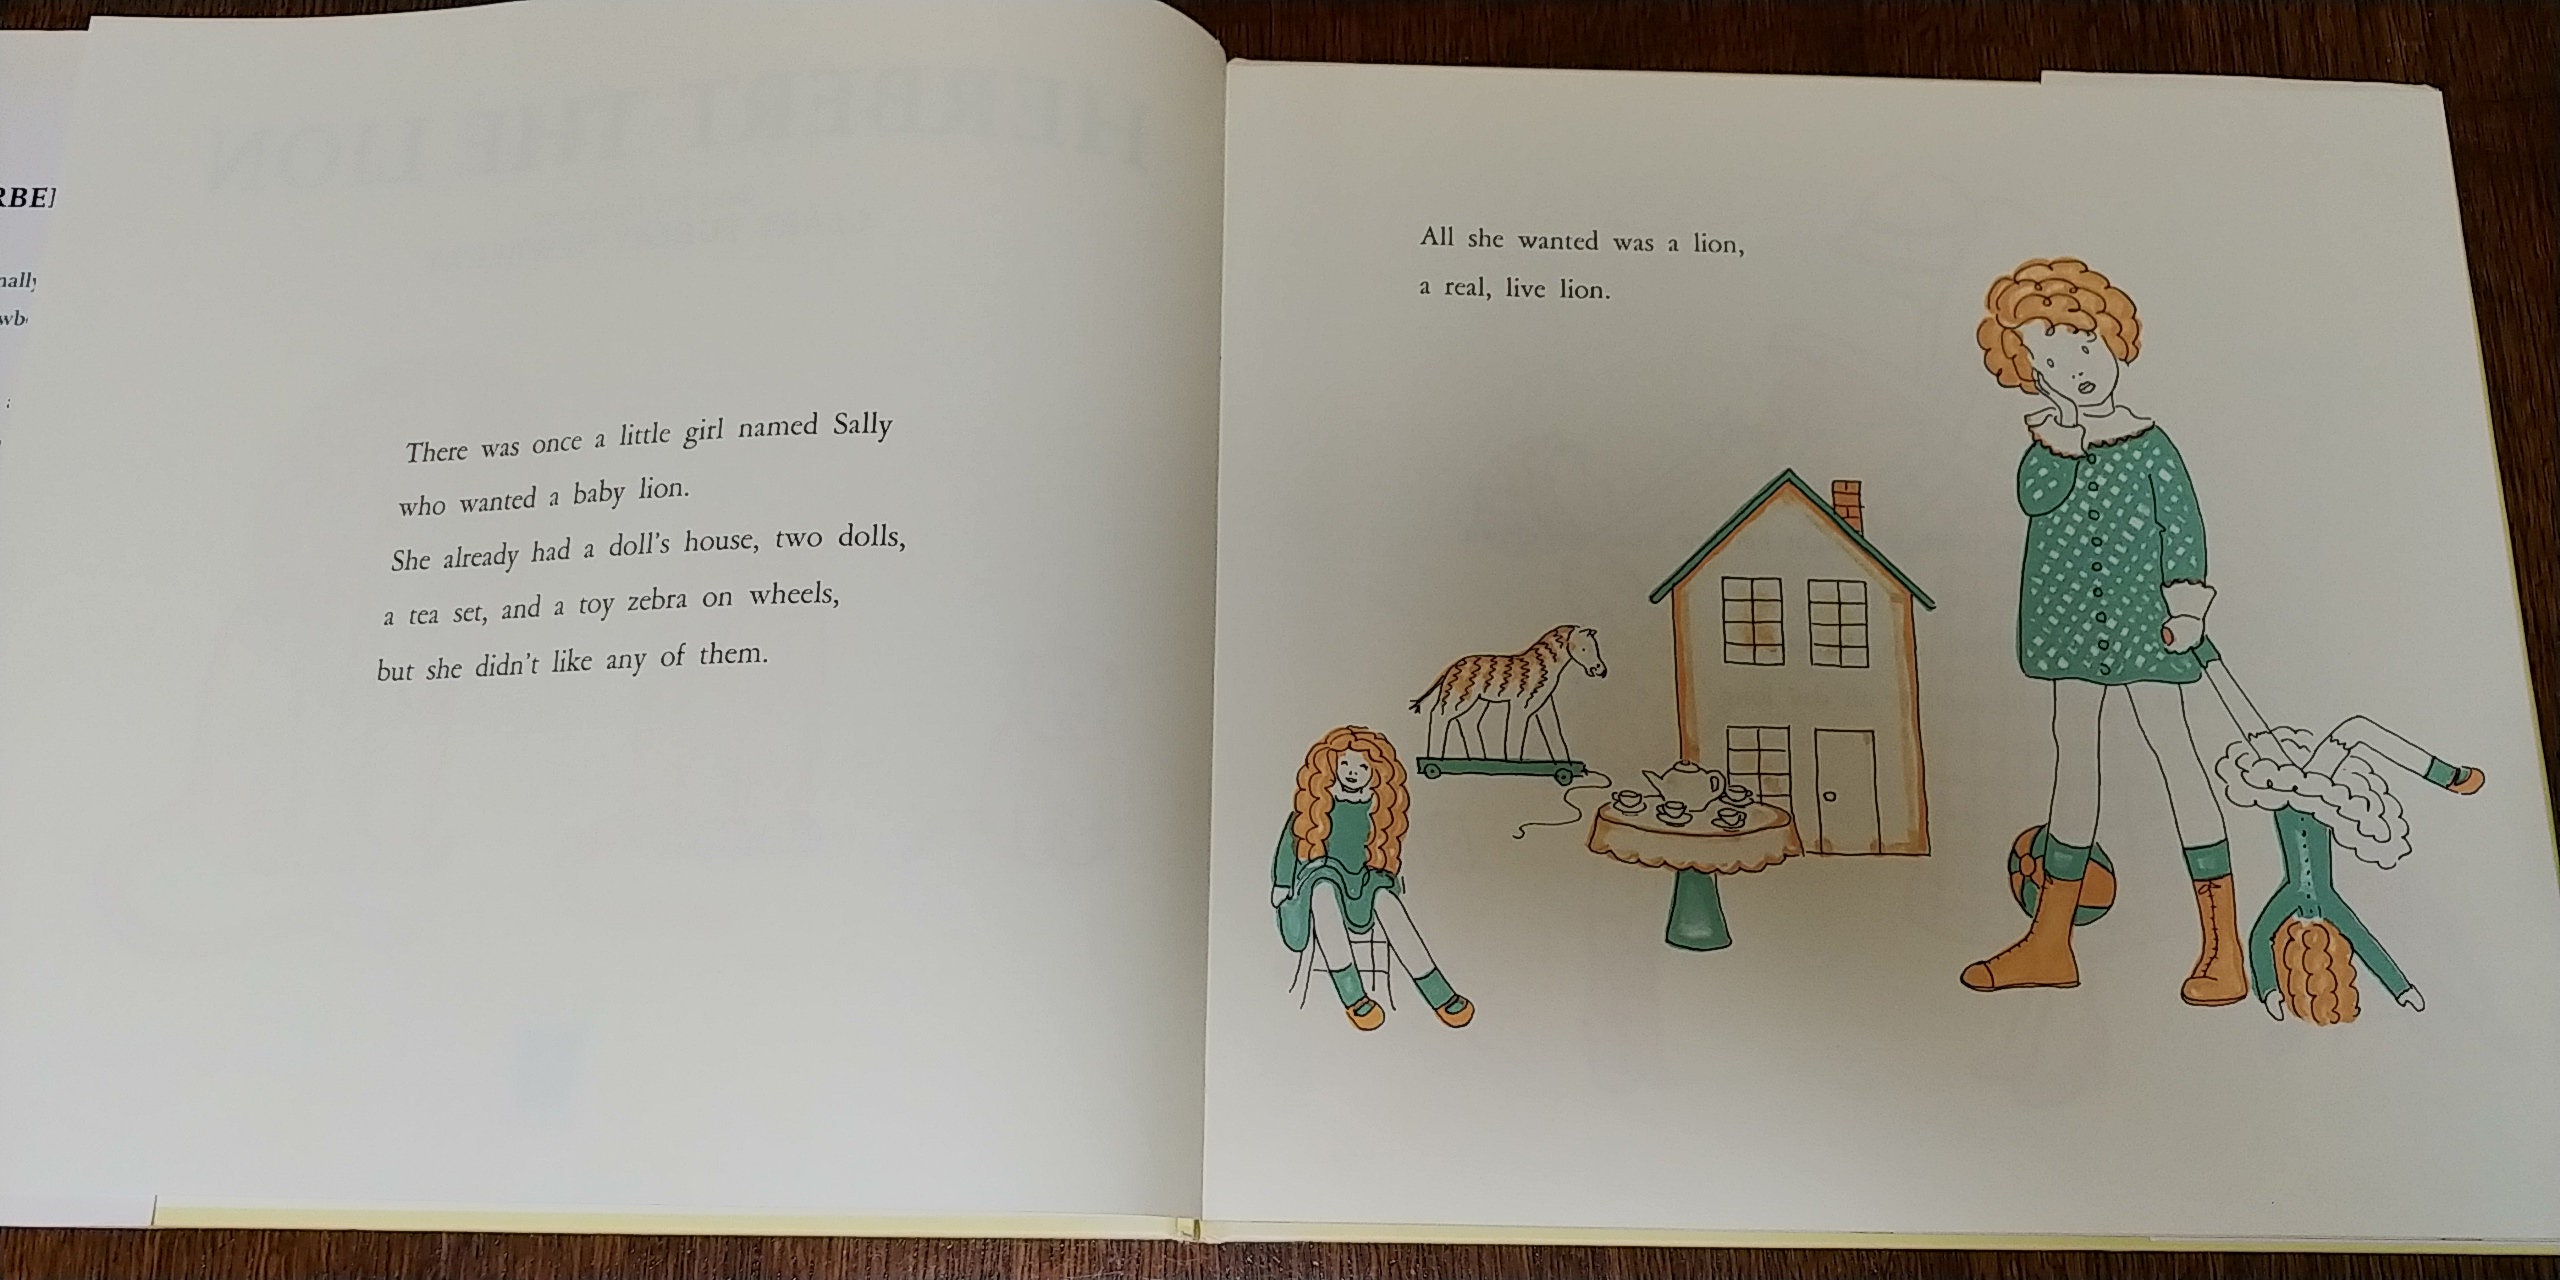 There was once a little girl named Sally
who wanted a baby lion.
She already had a doll's house, two dolls,
a tea set, and a toy zebra on wheels,
but she didn't like any of them.
All she wanted was a lion,
a real, live lion.